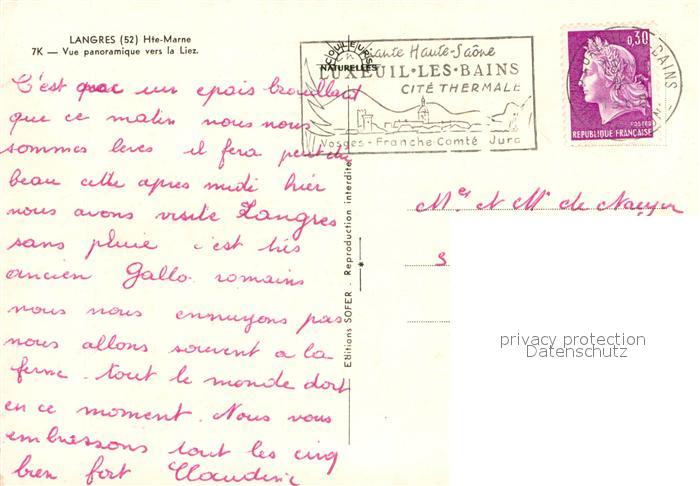 LANGRES (52) Hte-Marne
7K — Vue panoramique vers la Liez.
COULEURS
NATURELLES
Haute-Saône
LUXEUIL·LES·BAINS
CITÉ THERMALE
Vosges-Franche-Comté Jura
0,30
POSTES
REPUBLIQUE FRANÇAISE
BAINS
C'est avec un epais brouillard
que ce matin nous nous
sommes leves il fera peut être
beau cette apres midi hier
nous avons visite Langres
sans pluie c'est très
ancien Gallo romains
nous nous ennuyons pas
nous allons souvent a la
ferme. tout le monde dort
en ce moment. Nous vous
embrassons tout les cinq
bien fort Claudine
Editions SOFER. Reproduction interdite
Mes N Mr de Naeyer
3
privacy protection
Datenschutz